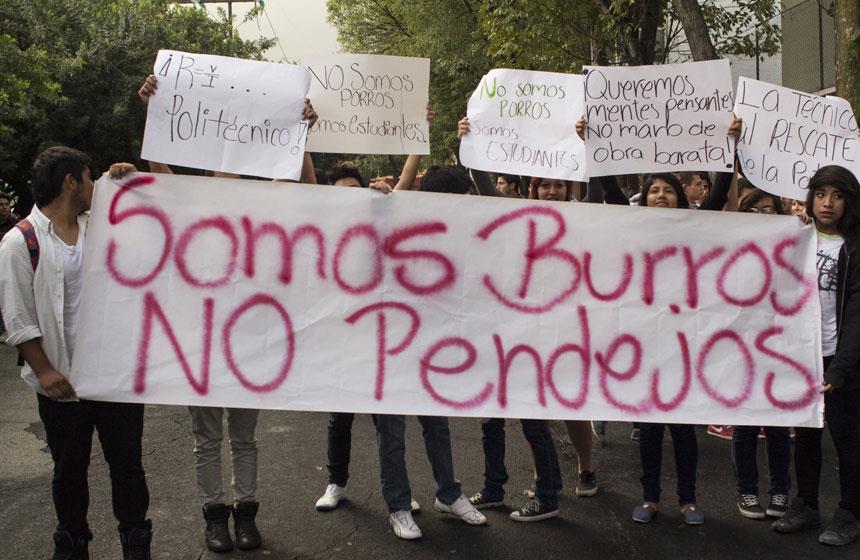 ¡R=¥...
Politécnico!
No Somos
PORROS
somos Estudiantes.
No somos
PORROS
Somos
ESTUDIANTES
Queremos
mentes pensantes
No mano de
obra barata!
La Técnica
al RESCATE
Somos Burros
NO Pendejos